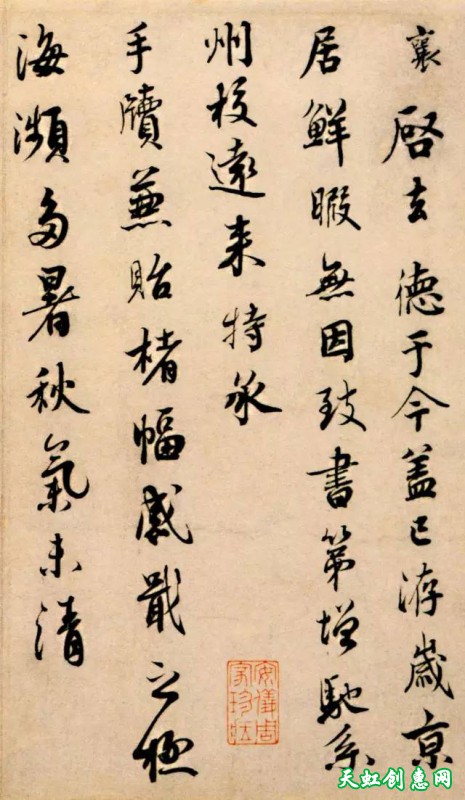 襄啓去德于今盖已洊歲京
居鮮暇無因致書第增馳系
州校遠来特承
手牘兼貽楮幅感戢之極
海瀕多暑秋氣未清
安儀周家珍蔵
天虹创惠网